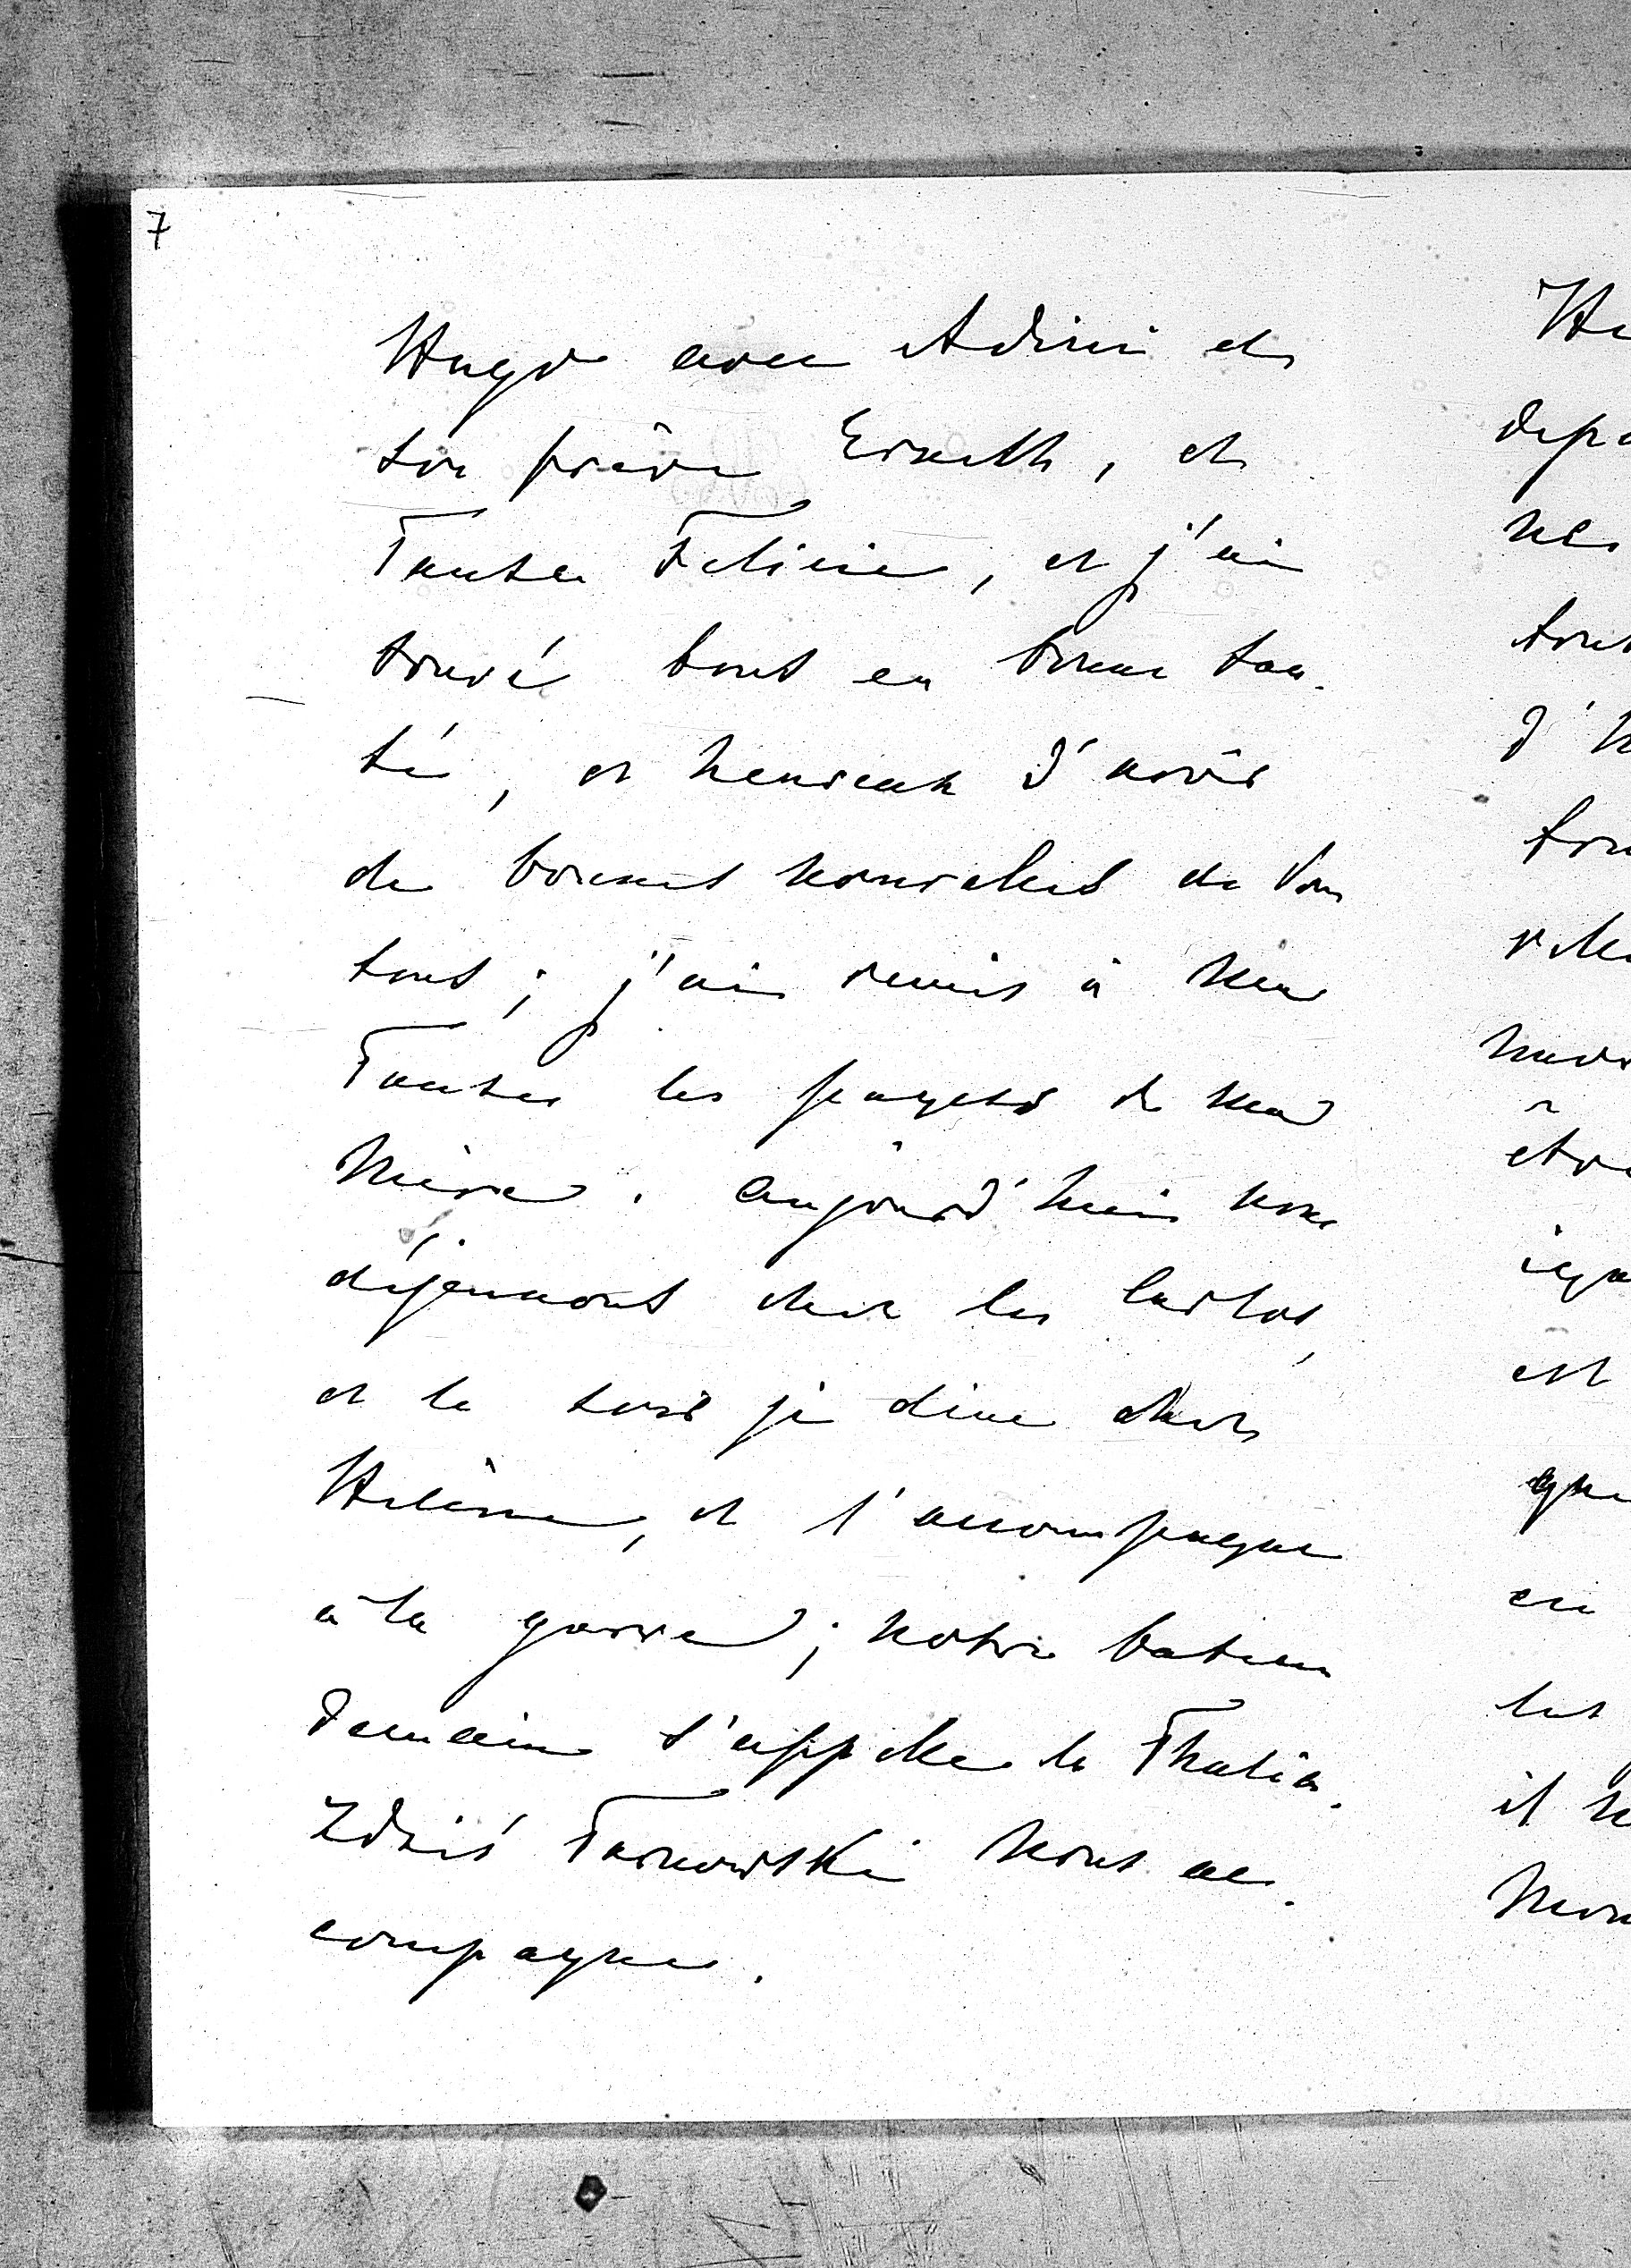 7
Hugo avec Adini et
son frère Ernest, et
Tante Felicie, et j'ai
trouvé tout en bonne san-
té, et heureux d'avoir
de bonnes nouvelles de Vous
tous; j'ai remis à ma
Tante les paquets de ma
Mère. Aujourd'hui nous
déjeunons chez les Carlos,
et le soir je dine chez
Hélène, et l'accompagne
à la garre; notre bateau
demain s'appelle la Thalia.
Zdziś Tarnowski nous ac-
compagne.